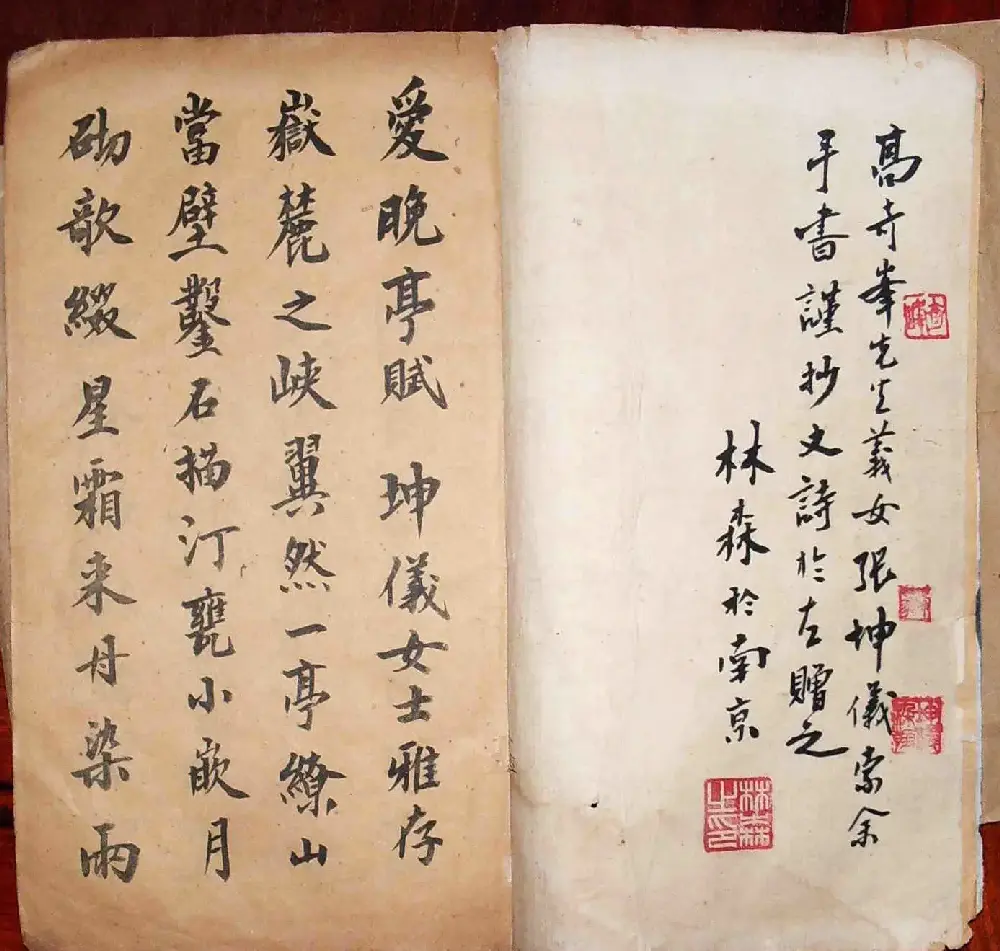 高奇峯先生義女張坤儀索余
手書謹抄文詩於左贈之
林森於南京
林森之印
愛晚亭賦 坤儀女士雅存
嶽麓之峽翼然一亭繚山
當壁鑿石描汀甕小嵌月
砌歆綴星霜来丹染雨